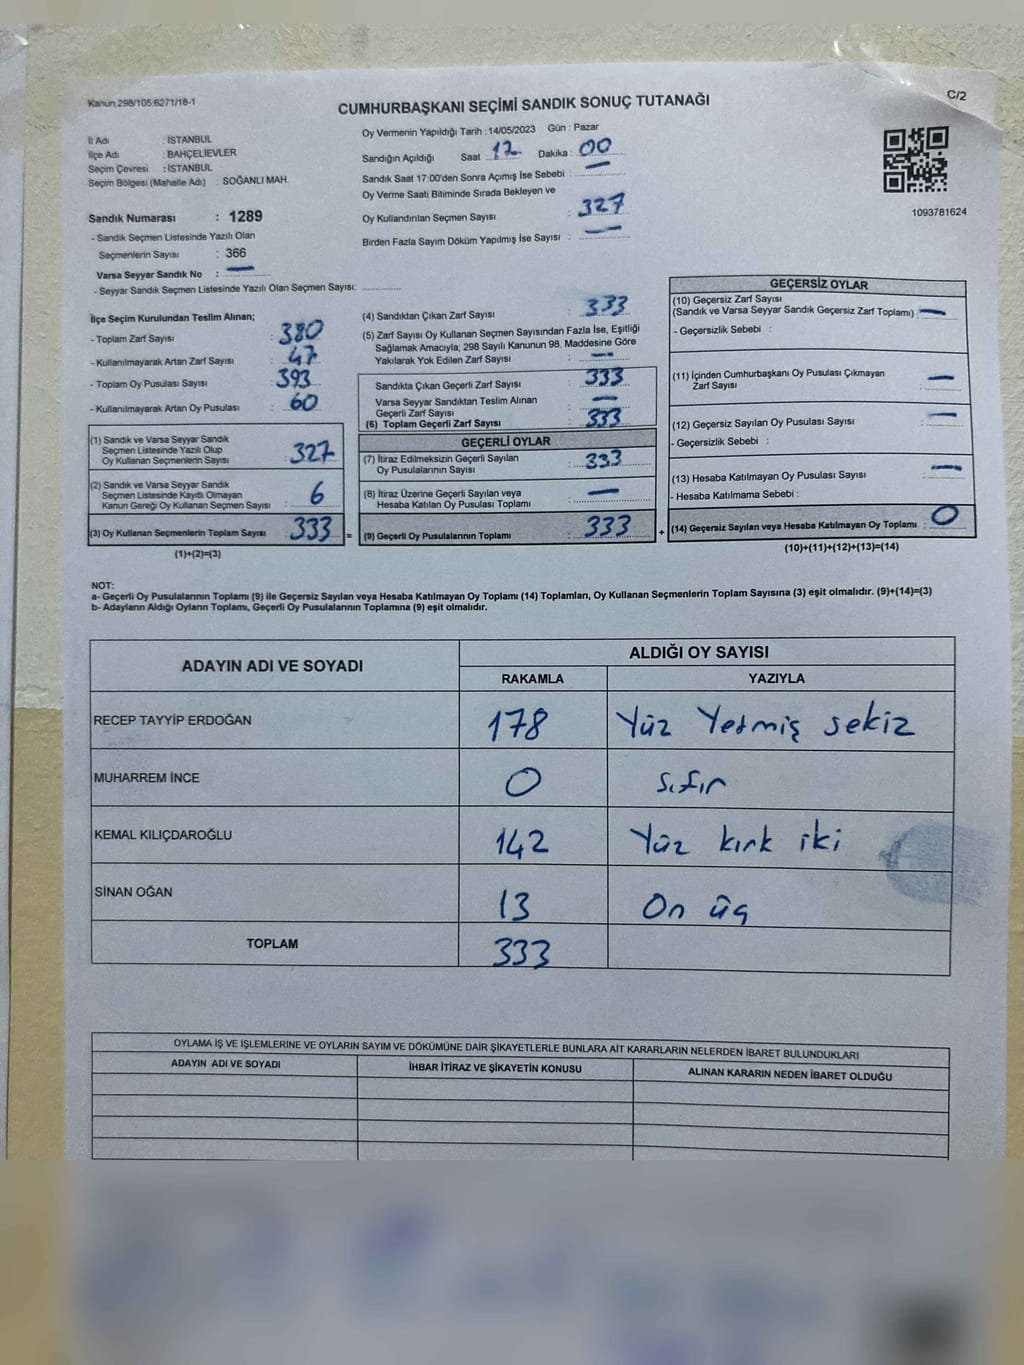 Kanun 298/105;6271/18-1
C/2
CUMHURBAŞKANI SEÇİMİ SANDIK SONUÇ TUTANAĞI
İl Adı : İSTANBUL
İlçe Adı : BAHÇELİEVLER
Seçim Çevresi : İSTANBUL
Seçim Bölgesi (Mahalle Adı) : SOĞANLI MAH.
Sandık Numarası : 1289
- Sandık Seçmen Listesinde Yazılı Olan
Seçmenlerin Sayısı : 366
Varsa Seyyar Sandık No : —
- Seyyar Sandık Seçmen Listesinde Yazılı Olan Seçmen Sayısı: ..............
Oy Vermenin Yapıldığı Tarih : 14/05/2023 Gün : Pazar
Sandığın Açıldığı Saat 17 Dakika : 00
Sandık Saat 17:00'den Sonra Açımış İse Sebebi : —
Oy Verme Saati Bitiminde Sırada Bekleyen ve
Oy Kullandırılan Seçmen Sayısı : 327
Birden Fazla Sayım Döküm Yapılmış İse Sayısı : —
1093781624
İlçe Seçim Kurulundan Teslim Alınan;
- Toplam Zarf Sayısı : 380
- Kullanılmayarak Artan Zarf Sayısı : 47
- Toplam Oy Pusulası Sayısı : 393
- Kullanılmayarak Artan Oy Pusulası : 60
(1) Sandık ve Varsa Seyyar Sandık
Seçmen Listesinde Yazılı Olup
Oy Kullanan Seçmenlerin Sayısı : 327
(2) Sandık ve Varsa Seyyar Sandık
Seçmen Listesinde Kayıtlı Olmayan
Kanun Gereği Oy Kullanan Seçmen Sayısı : 6
(3) Oy Kullanan Seçmenlerin Toplam Sayısı : 333
(1)+(2)=(3)
(4) Sandıktan Çıkan Zarf Sayısı : 333
(5) Zarf Sayısı Oy Kullanan Seçmen Sayısından Fazla İse, Eşitliği
Sağlamak Amacıyla; 298 Sayılı Kanunun 98. Maddesine Göre
Yakılarak Yok Edilen Zarf Sayısı : —
Sandıkta Çıkan Geçerli Zarf Sayısı : 333
Varsa Seyyar Sandıktan Teslim Alınan
Geçerli Zarf Sayısı : —
(6) Toplam Geçerli Zarf Sayısı : 333
GEÇERLİ OYLAR
(7) İtiraz Edilmeksizin Geçerli Sayılan
Oy Pusulalarının Sayısı : 333
(8) İtiraz Üzerine Geçerli Sayılan veya
Hesaba Katılan Oy Pusulası Toplamı : —
= (9) Geçerli Oy Pusulalarının Toplamı : 333 +
GEÇERSİZ OYLAR
(10) Geçersiz Zarf Sayısı
(Sandık ve Varsa Seyyar Sandık Geçersiz Zarf Toplamı) : —
- Geçersizlik Sebebi :
(11) İçinden Cumhurbaşkanı Oy Pusulası Çıkmayan
Zarf Sayısı : —
(12) Geçersiz Sayılan Oy Pusulası Sayısı : —
- Geçersizlik Sebebi :
(13) Hesaba Katılmayan Oy Pusulası Sayısı : —
- Hesaba Katılmama Sebebi :
(14) Geçersiz Sayılan veya Hesaba Katılmayan Oy Toplamı : 0
(10)+(11)+(12)+(13)=(14)
NOT:
a- Geçerli Oy Pusulalarının Toplamı (9) ile Geçersiz Sayılan veya Hesaba Katılmayan Oy Toplamı (14) Toplamları, Oy Kullanan Seçmenlerin Toplam Sayısına (3) eşit olmalıdır. (9)+(14)=(3)
b- Adayların Aldığı Oyların Toplamı, Geçerli Oy Pusulalarının Toplamına (9) eşit olmalıdır.
ADAYIN ADI VE SOYADI ALDIĞI OY SAYISI
RAKAMLA YAZIYLA
RECEP TAYYİP ERDOĞAN 178 Yüz Yetmiş sekiz
MUHARREM İNCE 0 sıfır
KEMAL KILIÇDAROĞLU 142 Yüz kırk iki
SİNAN OĞAN 13 On üç
TOPLAM 333
OYLAMA İŞ VE İŞLEMLERİNE VE OYLARIN SAYIM VE DÖKÜMÜNE DAİR ŞİKAYETLERLE BUNLARA AİT KARARLARIN NELERDEN İBARET BULUNDUKLARI
ADAYIN ADI VE SOYADI İHBAR İTİRAZ VE ŞİKAYETİN KONUSU ALINAN KARARIN NEDEN İBARET OLDUĞU